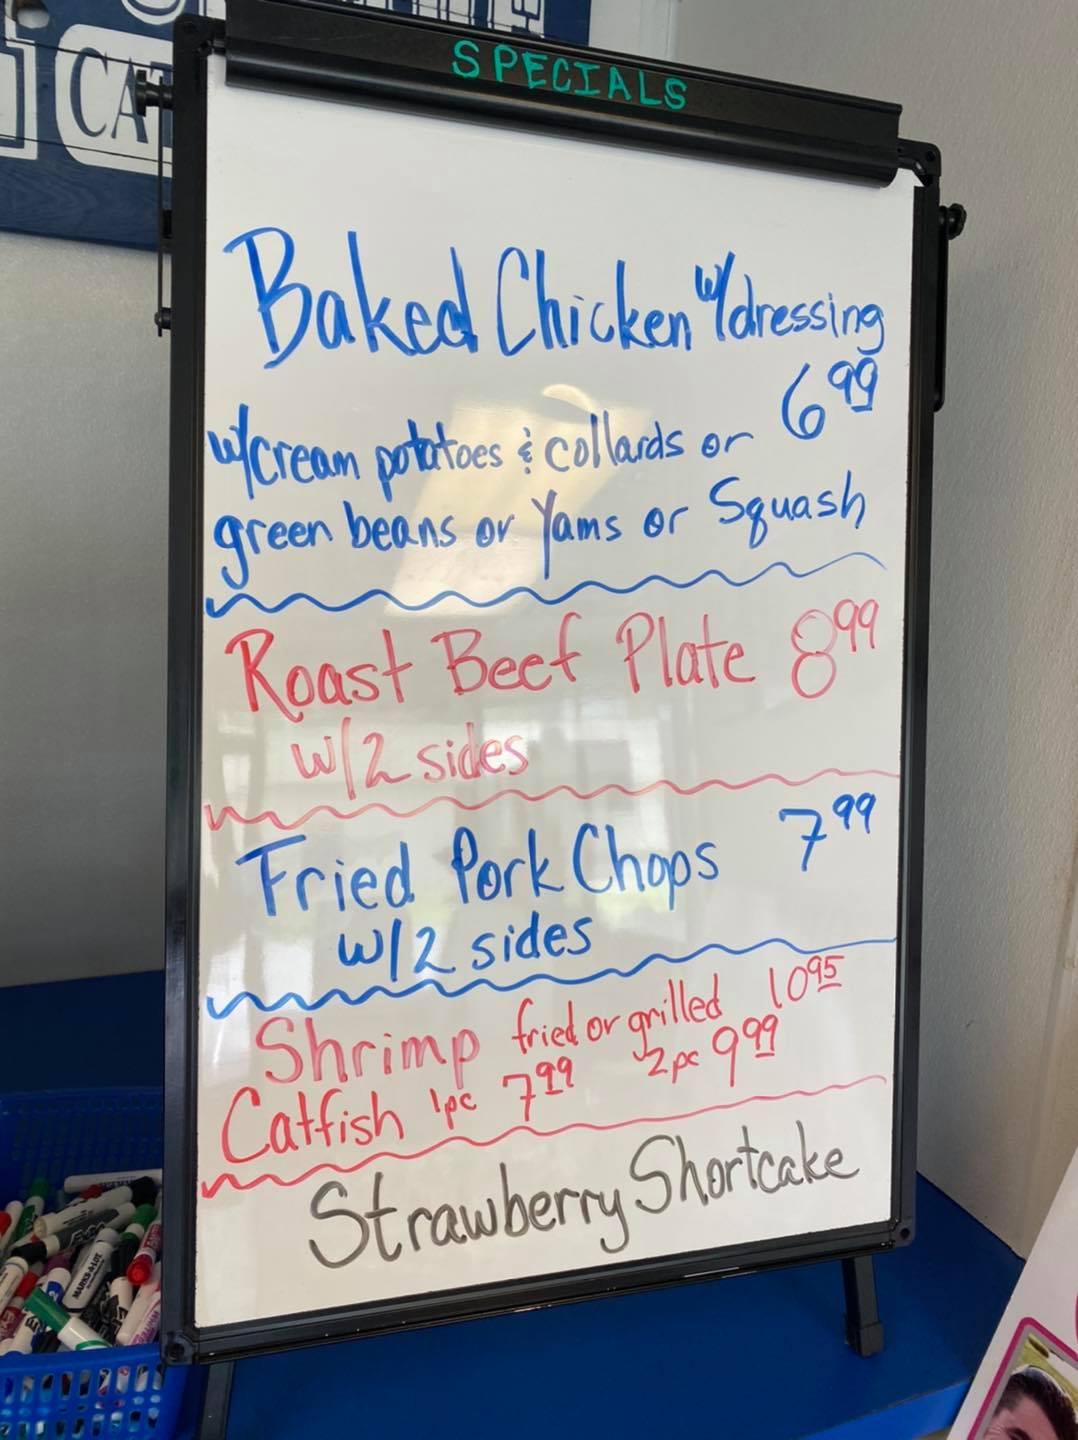 CA
SPECIALS
Baked Chicken w/dressing
6 99
w/cream potatoes & collards or
green beans or Yams or Squash
Roast Beef Plate 8 99
w/2 sides
Fried Pork Chops 7 99
w/2 sides
Shrimp fried or grilled 10 95
Catfish 1pc 7 99 2pc 9 99
Strawberry Shortcake
MARKS-A-LOT